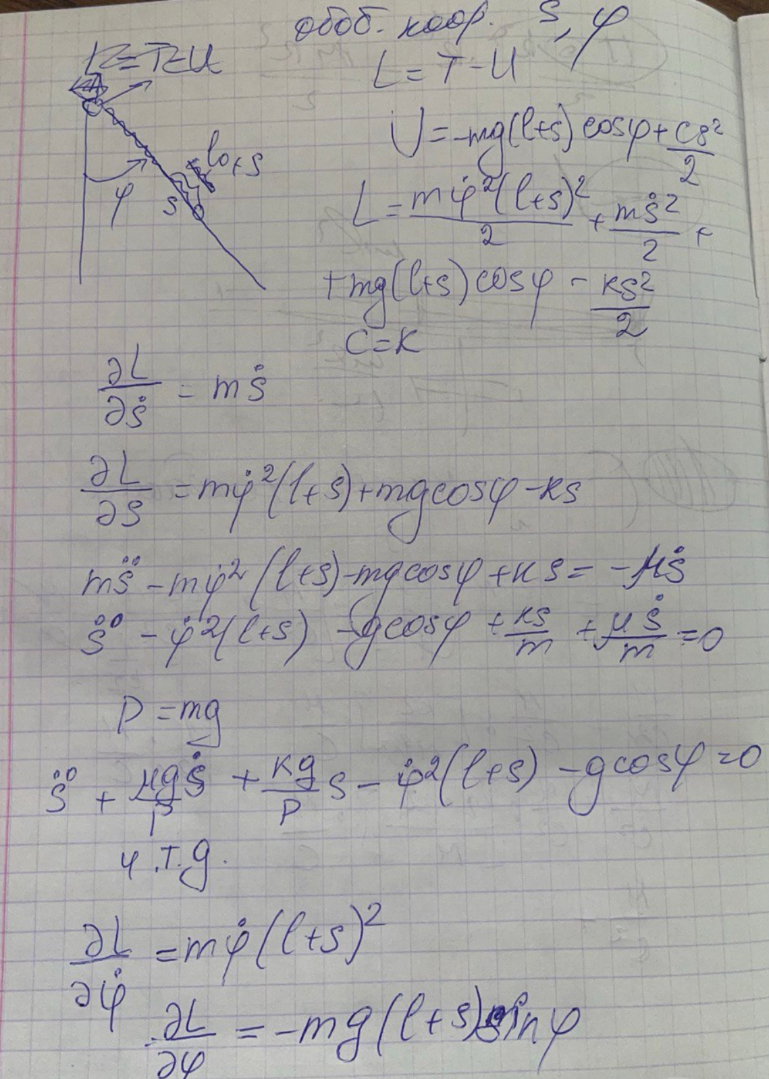 обоб. коор. s, φ
L = T - U
U = -mg(l+s)cosφ + cs²/2
φ
s
l₀+s
L = mφ̇²(l+s)²/2 + mṡ²/2 +
+ mg(l+s)cosφ - ks²/2
c = k
∂L/∂ṡ = mṡ
∂L/∂s = mφ̇²(l+s) + mgcosφ - ks
ms̈ - mφ̇²(l+s) - mgcosφ + ks = -μṡ
s̈ - φ̇²(l+s) - gcosφ + ks/m + μṡ/m = 0
P = mg
s̈ + μgṡ/P + kg/P s - φ̇²(l+s) - gcosφ = 0
ч.т.д.
∂L/∂φ̇ = mφ̇(l+s)²
∂L/∂φ = -mg(l+s)sinφ